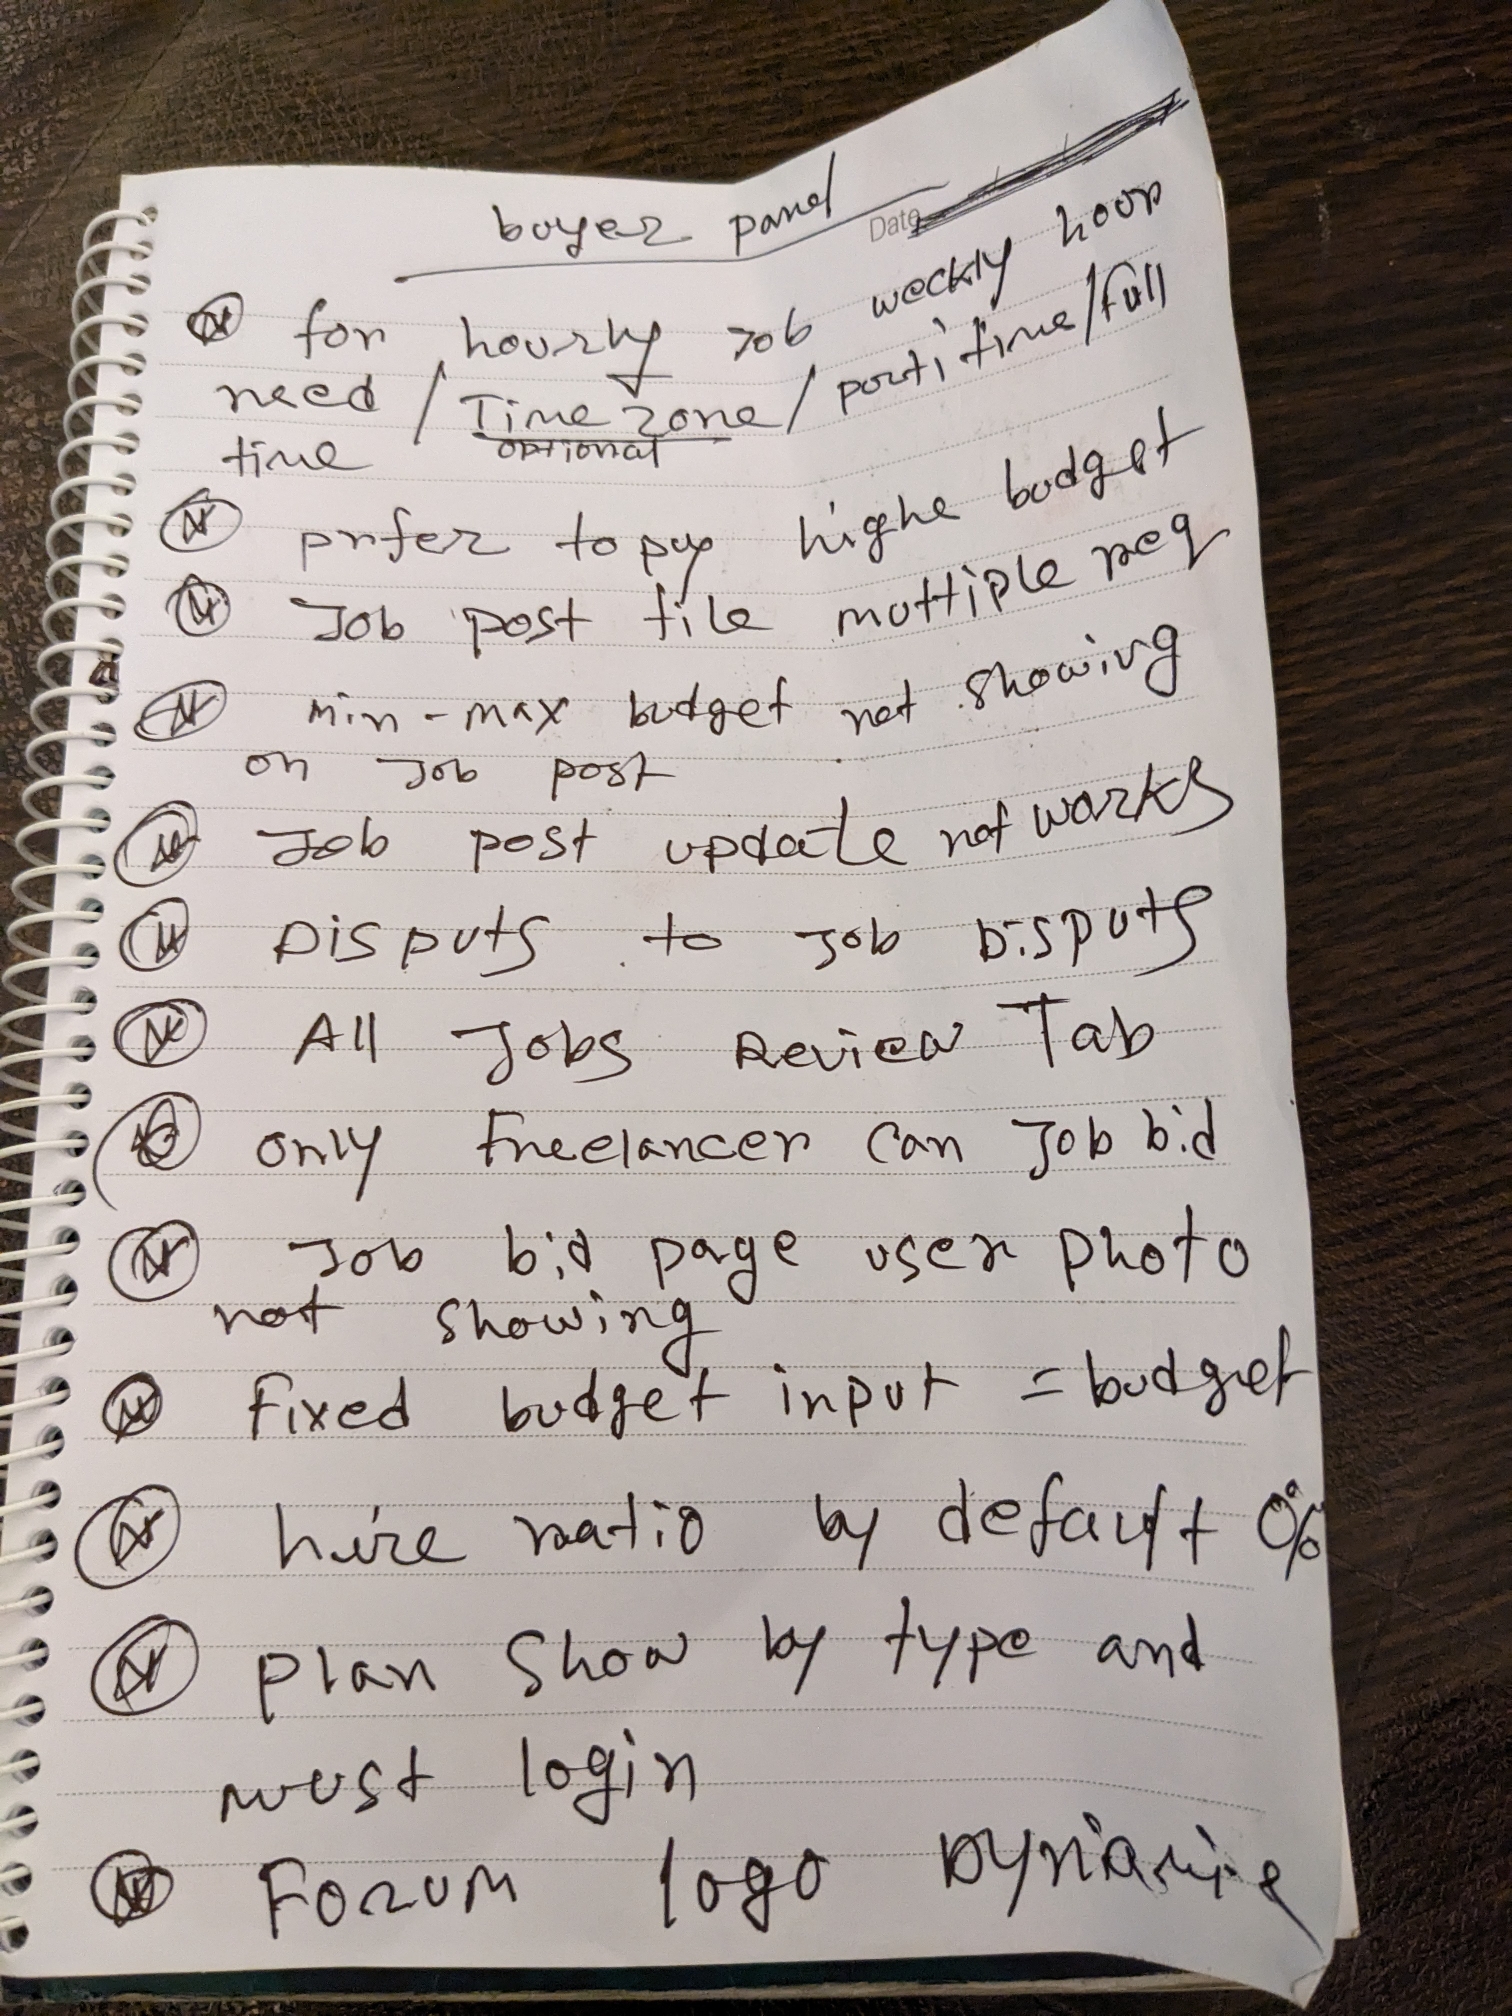 buyer panel
Date
for hourly Job weekly hour
need / Time zone / parti time/full
time optional
prfer to pay highe budget
Job post file multiple req
min-max budget not showing
on Job post
Job post update not works
Disputs to Job Disputs
All Jobs Review Tab
only Freelancer can Job bid
Job bid page user photo
not showing
Fixed budget input = budget
hire ratio by default 0%
plan show by type and
must login
Forum logo Dynamic